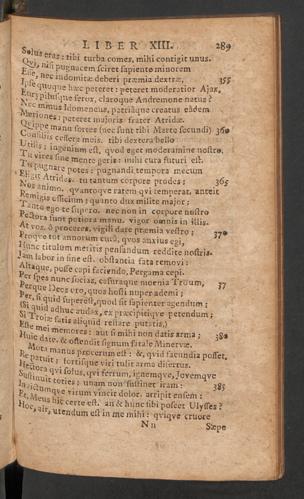 LIBER XIII. 289
Solus eras: tibi turba comes, mihi contigit unus.
Qui, nisi pugnacem sciret sapiente minorem
Esse, nec indomitæ deberi præmia dextræ, 355
Ipse quoque hæc peteret: peteret moderatior Ajax,
Eurypilusque ferox, claroque Andremone natus?
Nec minus Idomeneus, patriâque creatus eâdem
Meriones: peteret majoris frater Atridæ.
Quippe manu fortes (nec sunt tibi Marte secundi) 360
Consiliis cessere meis. tibi dextera bello
Utilis; ingenium est, quod eget moderamine nostro.
Tu vires sine mente geris: mihi cura futuri est.
Tu pugnare potes: pugnandi tempora mecum
Eligit Atrides. tu tantum corpore prodes; 365
Nos animo. quantoque ratem qui temperat, anteit
Remigis officium; quanto dux milite major;
Tanto ego te supero. nec non in corpore nostro
Pectora sunt potiora manu. vigor omnis in illis.
At vos, ô proceres, vigili date præmia vestro; 370
Proque tot annorum curâ, quos anxius egi,
Hunc titulum meritis pensandum reddite nostris.
Jam labor in fine est. obstantia fata removi:
Altaque, posse capi faciendo, Pergama cepi.
Per spes nunc socias, casuraque mœnia Troum, 375
Perque Deos oro, quos hosti nuper ademi;
Per, si quid superest, quod sit sapienter agendum;
(Si quid adhuc audax, ex præcipitique petendum;
Si Trojæ fatis aliquid restare putatis)
Este mei memores: aut si mihi non datis arma; 380
Huic date. & ostendit signum fatale Minervæ.
Mota manus procerum est: &, quid facundia posset,
Re patuit; fortisque viri tulit arma disertus.
Hectora qui solus, qui ferrum, ignemque, Jovemque
Sustinuit toties: unam non sustinet iram: 385
Invictumque virum vincit dolor. arripit ensem:
Et, Meus hic certe est. an & hunc sibi poscet Ulysses?
Hoc, ait, utendum est in me mihi: quique cruore
Nn Sæpe